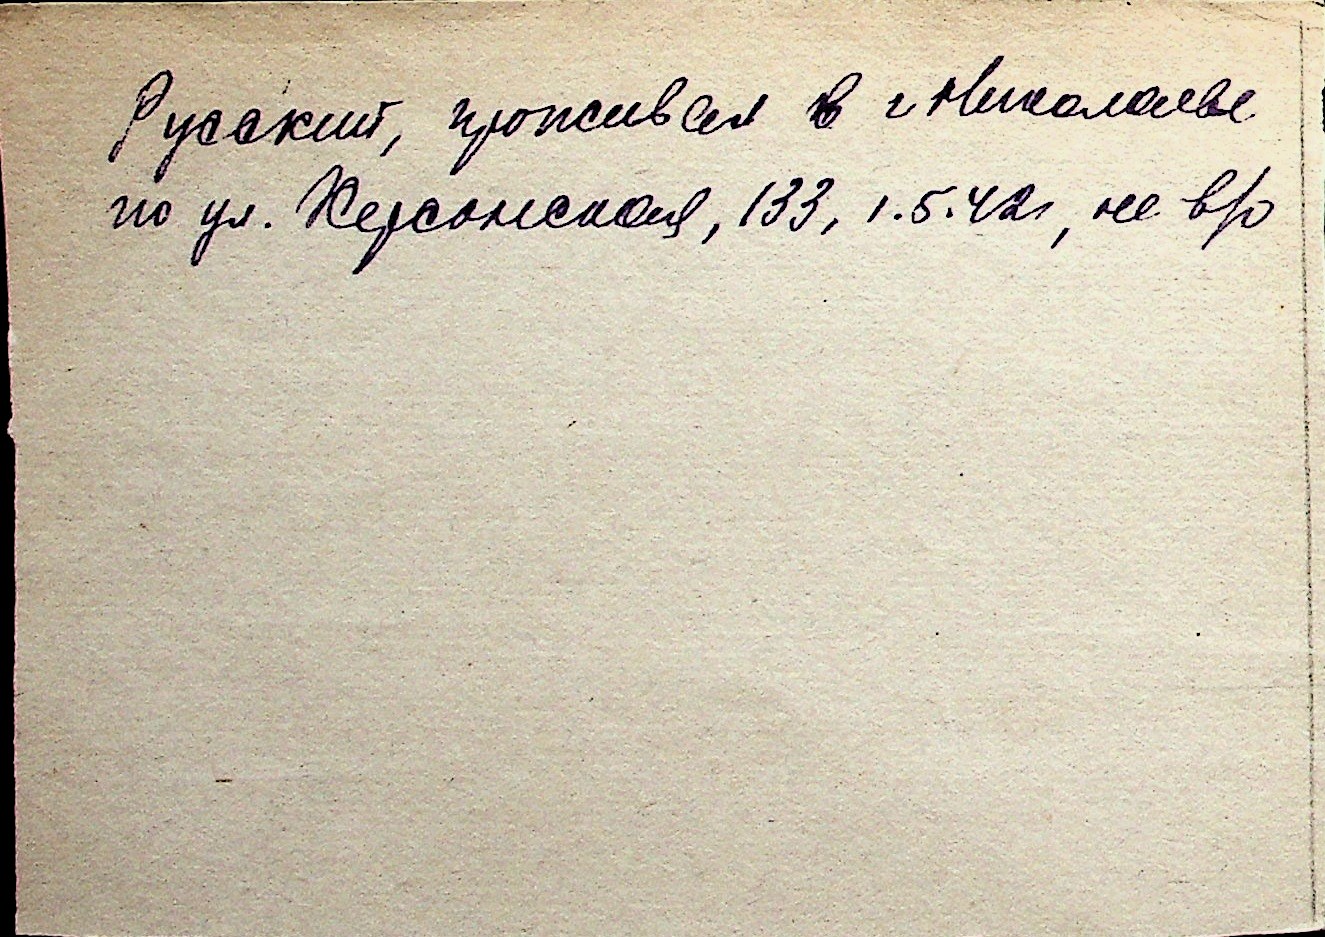 Русский, проживал в г Николаеве
по ул. Херсонская, 133, 1.5.42г, не в/о